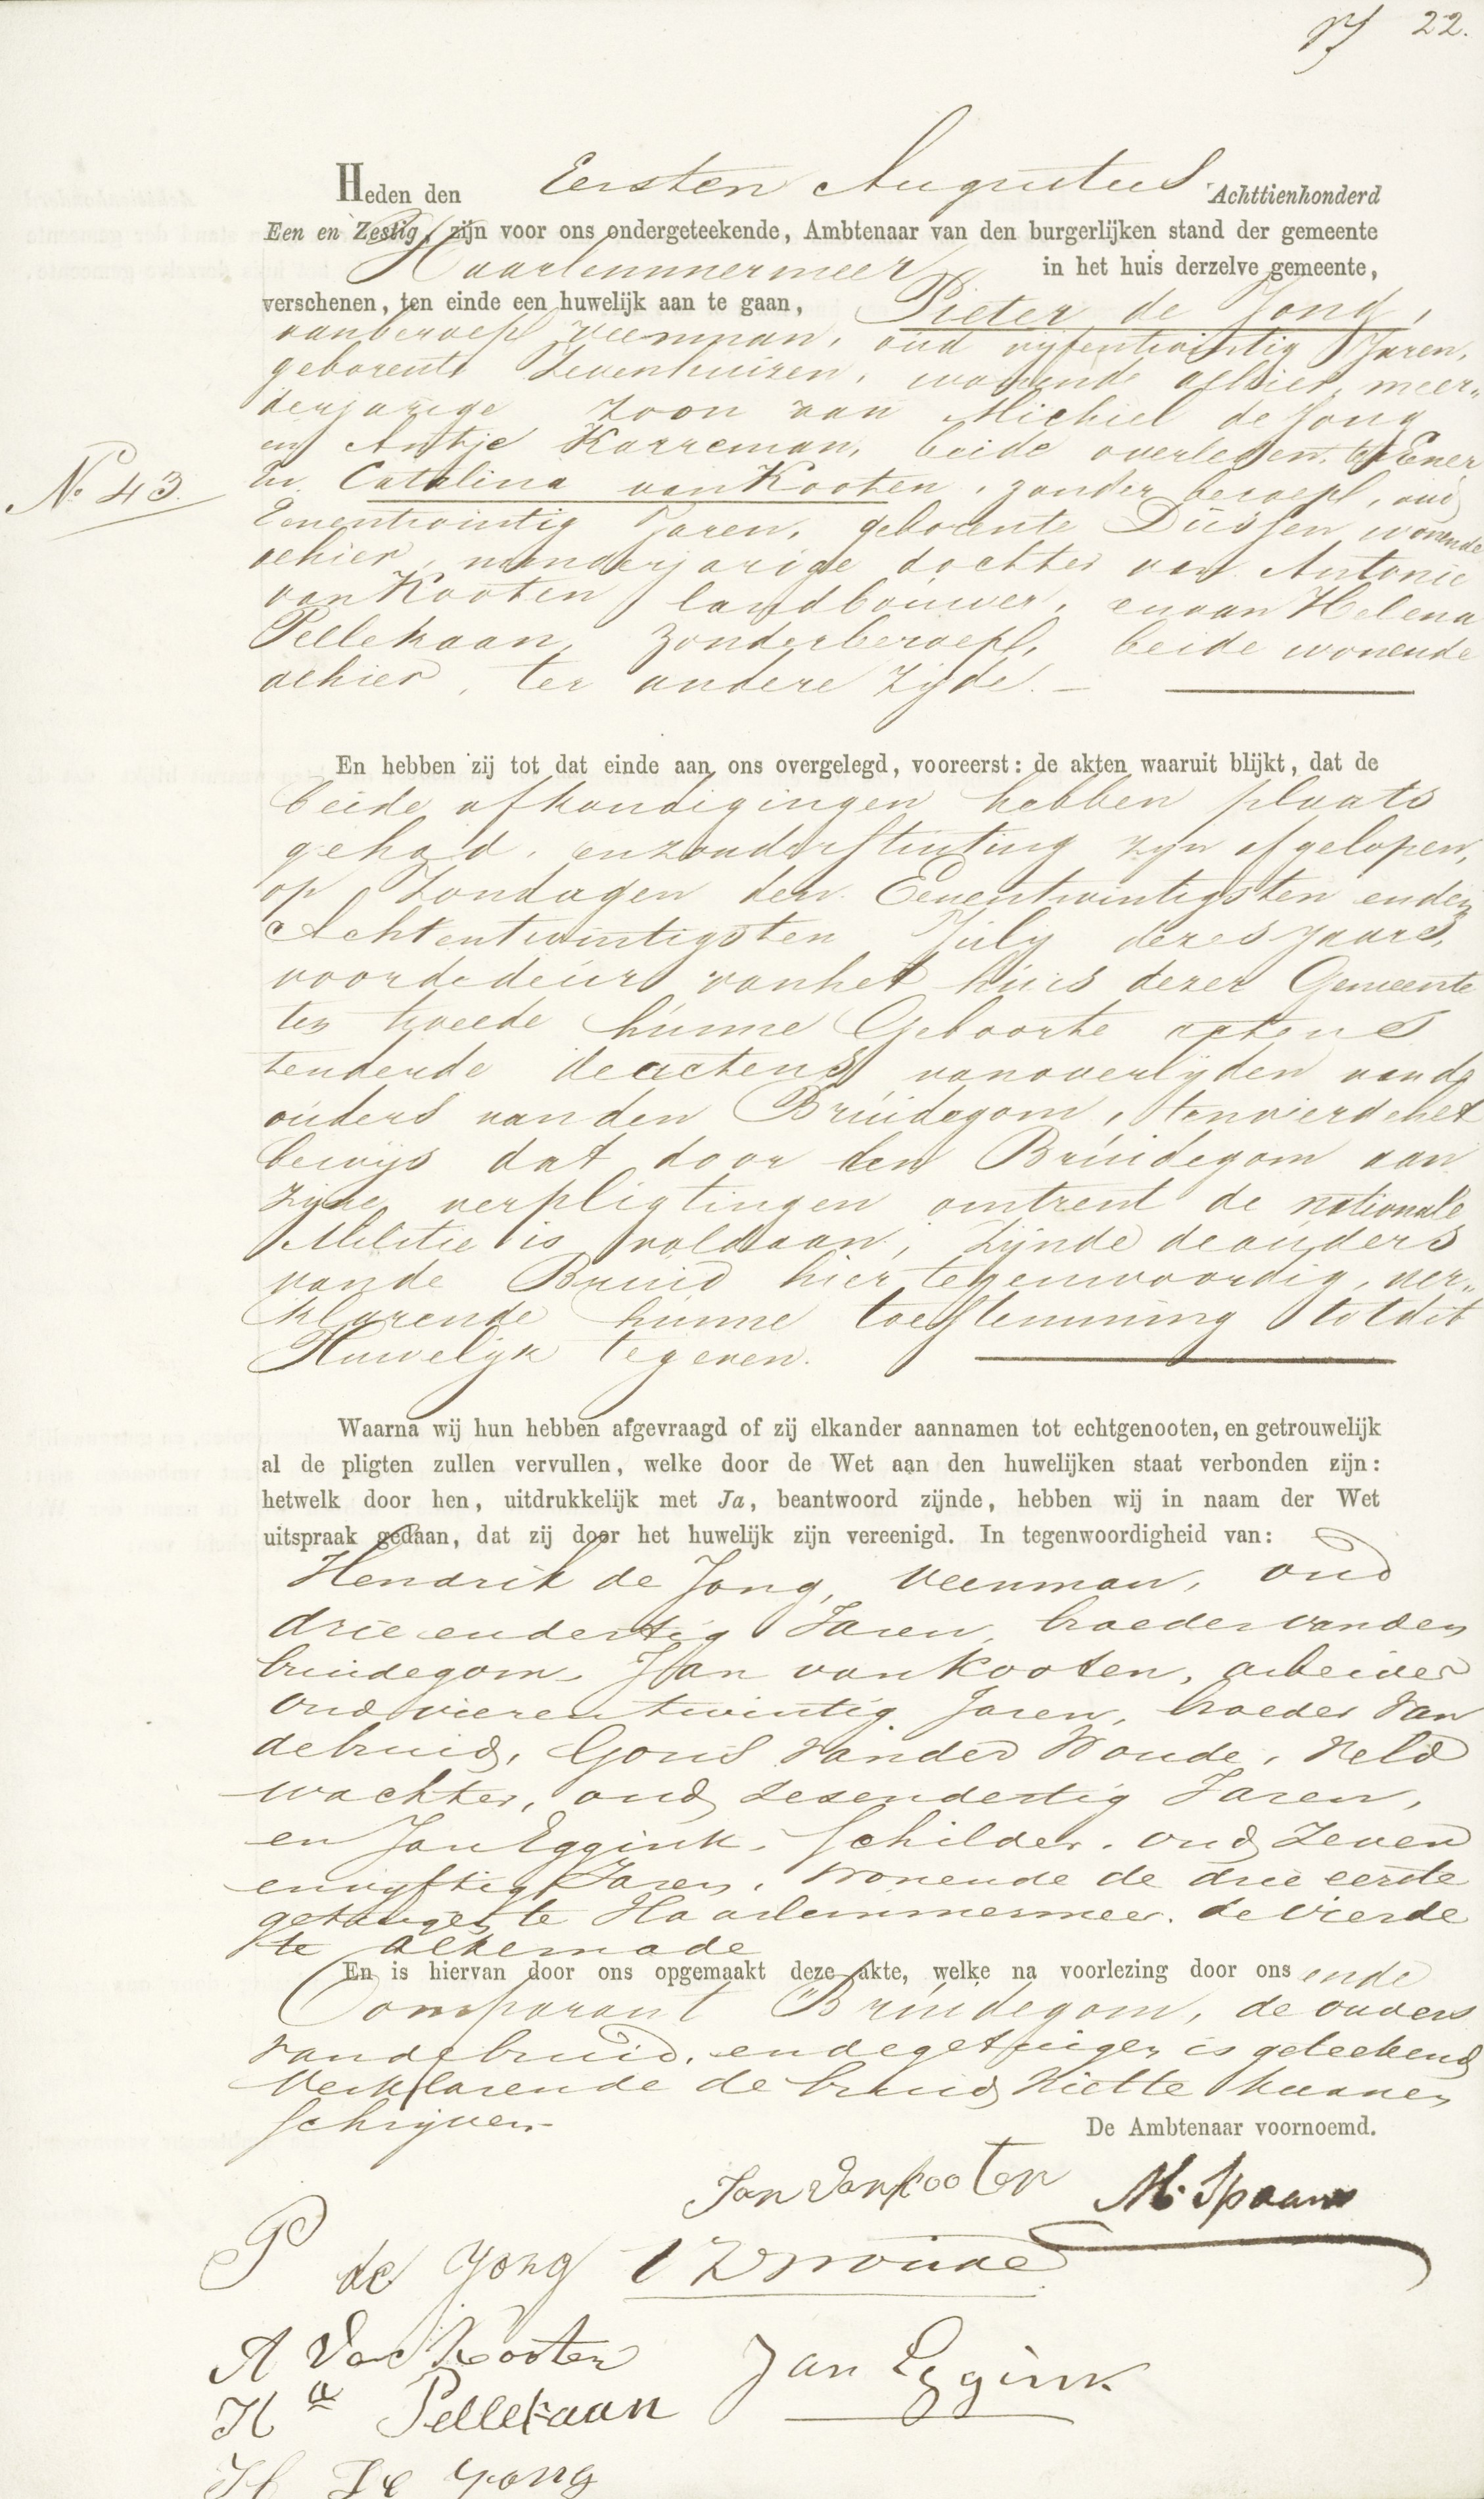 22.
Heden den Eersten Augustus Achttienhonderd
Een en Zestig, zijn voor ons ondergeteekende, Ambtenaar van den burgerlijken stand der gemeente
Haarlemmermeer in het huis derzelve gemeente,
verschenen, ten einde een huwelijk aan te gaan, Pieter de Jong,
van beroep veenman, oud vijfentwintig Jaren,
geboren te Zevenhuizen, wonende alhier, meer„
derjarige zoon van Michiel de Jong
en Antje Karreman, beide overleden, ter Eener
N. 43.
en Catalina van Kooten, zonder beroep, oud
Eenentwintig Jaren, geboren te Dussen wonende
alhier, minderjarige dochter van Antonie
van Kooten landbouwer, en van Helena
Pellekaan, zonder beroep, beide wonende
alhier, ter andere zijde. —
En hebben zij tot dat einde aan ons overgelegd, vooreerst: de akten waaruit blijkt, dat de
beide afkondigingen hebben plaats
gehad, en zonder stuiting zijn afgelopen,
op Zondagen den Eenentwintigsten en den
Achtentwintigsten July dezes jaars,
voor de deur van het huis dezer Gemeente
ten tweede hunne Geboorte actens
tenderde de actens van overlijden van de
ouders van den Bruidegom, ten vierde het
bewijs dat door den Bruidegom aan
zijne verpligtingen omtrent de nationale
Militie is voldaan, zijnde de ouders
van de Bruid hier tegenwoordig, ver„
klarende hunne toestemming tot dit
Huwelijk te geven.
Waarna wij hun hebben afgevraagd of zij elkander aannamen tot echtgenooten, en getrouwelijk
al de pligten zullen vervullen, welke door de Wet aan den huwelijken staat verbonden zijn:
hetwelk door hen, uitdrukkelijk met Ja, beantwoord zijnde, hebben wij in naam der Wet
uitspraak gedaan, dat zij door het huwelijk zijn vereenigd. In tegenwoordigheid van:
Hendrik de Jong, veenman, oud
drie endertig Jaren, broeder van den
bruidegom, Jan van Kooten, arbeider
oud vierentwintig Jaren, broeder van
de bruid, Goris van der Woude, veld
wachter, oud zesendertig Jaren,
en Jan Eggink, schilder, oud Zeven
envijftig Jaren, wonende de drie eerste
getuigen te Haarlemmermeer, de vierde
te Alkemade
En is hiervan door ons opgemaakt deze akte, welke na voorlezing door ons en de
Comparant Bruidegom, de ouders
van de bruid, en de getuigen is geteekend
Verklarende de bruid niette kunnen
schrijven
De Ambtenaar voornoemd.
Jan van Kooten M. Spaan
P de Jong VD Woude
A Van Kooten Jan Eggink
Ha Pellekaan
H De Jong